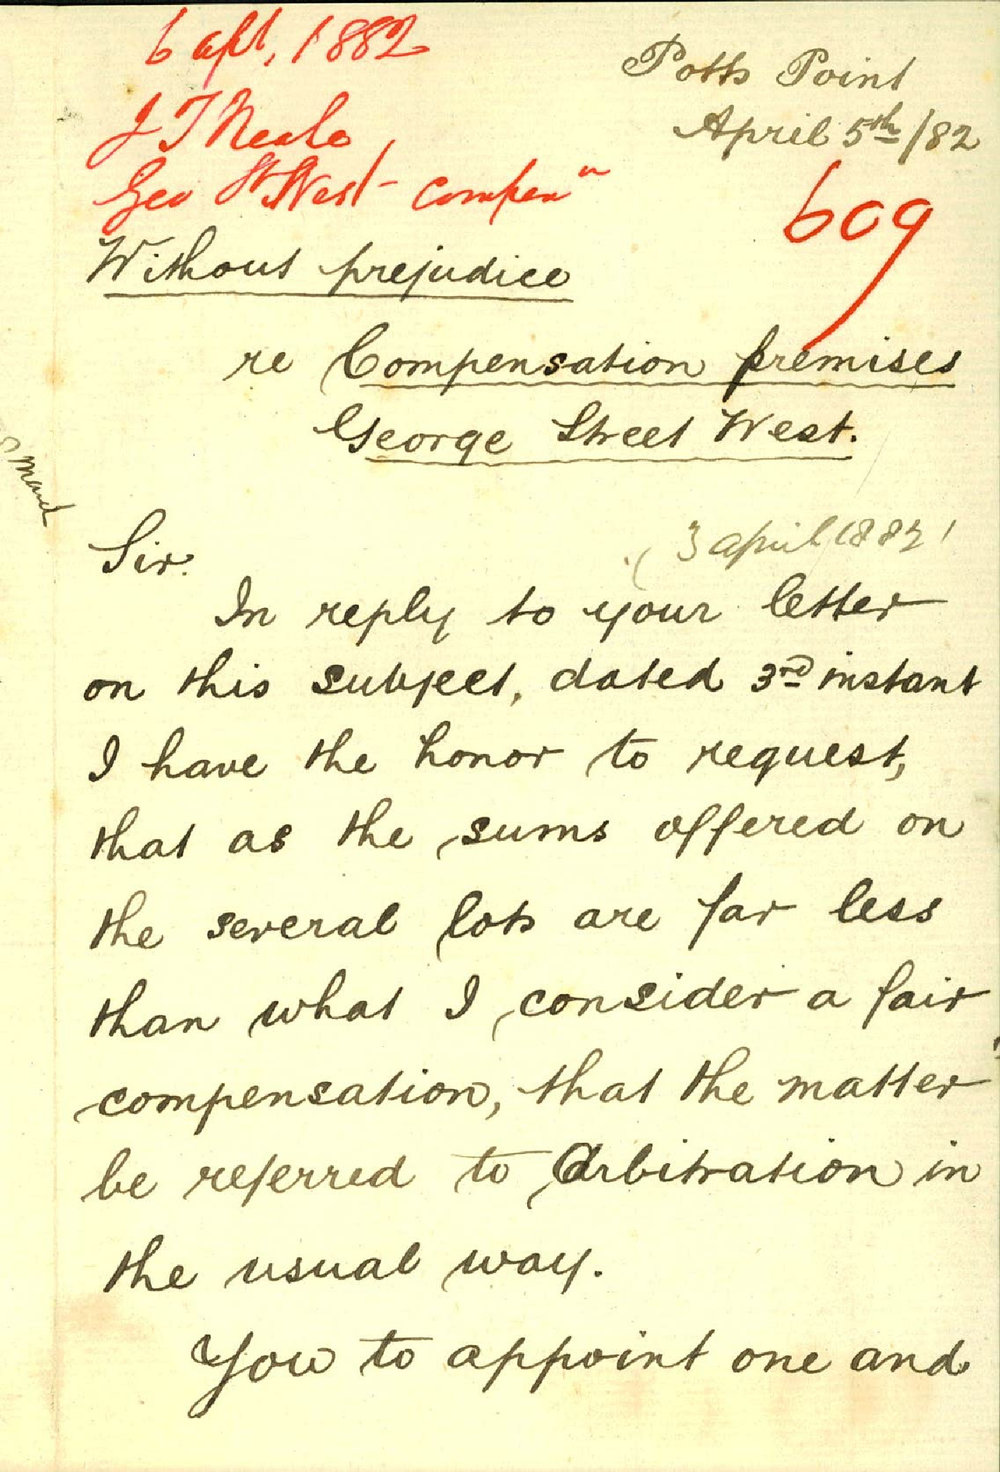 6 Apl, 1882
J T Neale
Geo St West - Compen n
Potts Point
April 5th /82
609
Without prejudice
re Compensation premises
George Street West.
(3 April 1882)
Sir.
In reply to your letter
on this subject, dated 3rd instant
I have the honor to request,
that as the sums offered on
the several lots are far less
than what I consider a fair
compensation, that the matter
be referred to Arbitration in
the usual way.
You to appoint one and